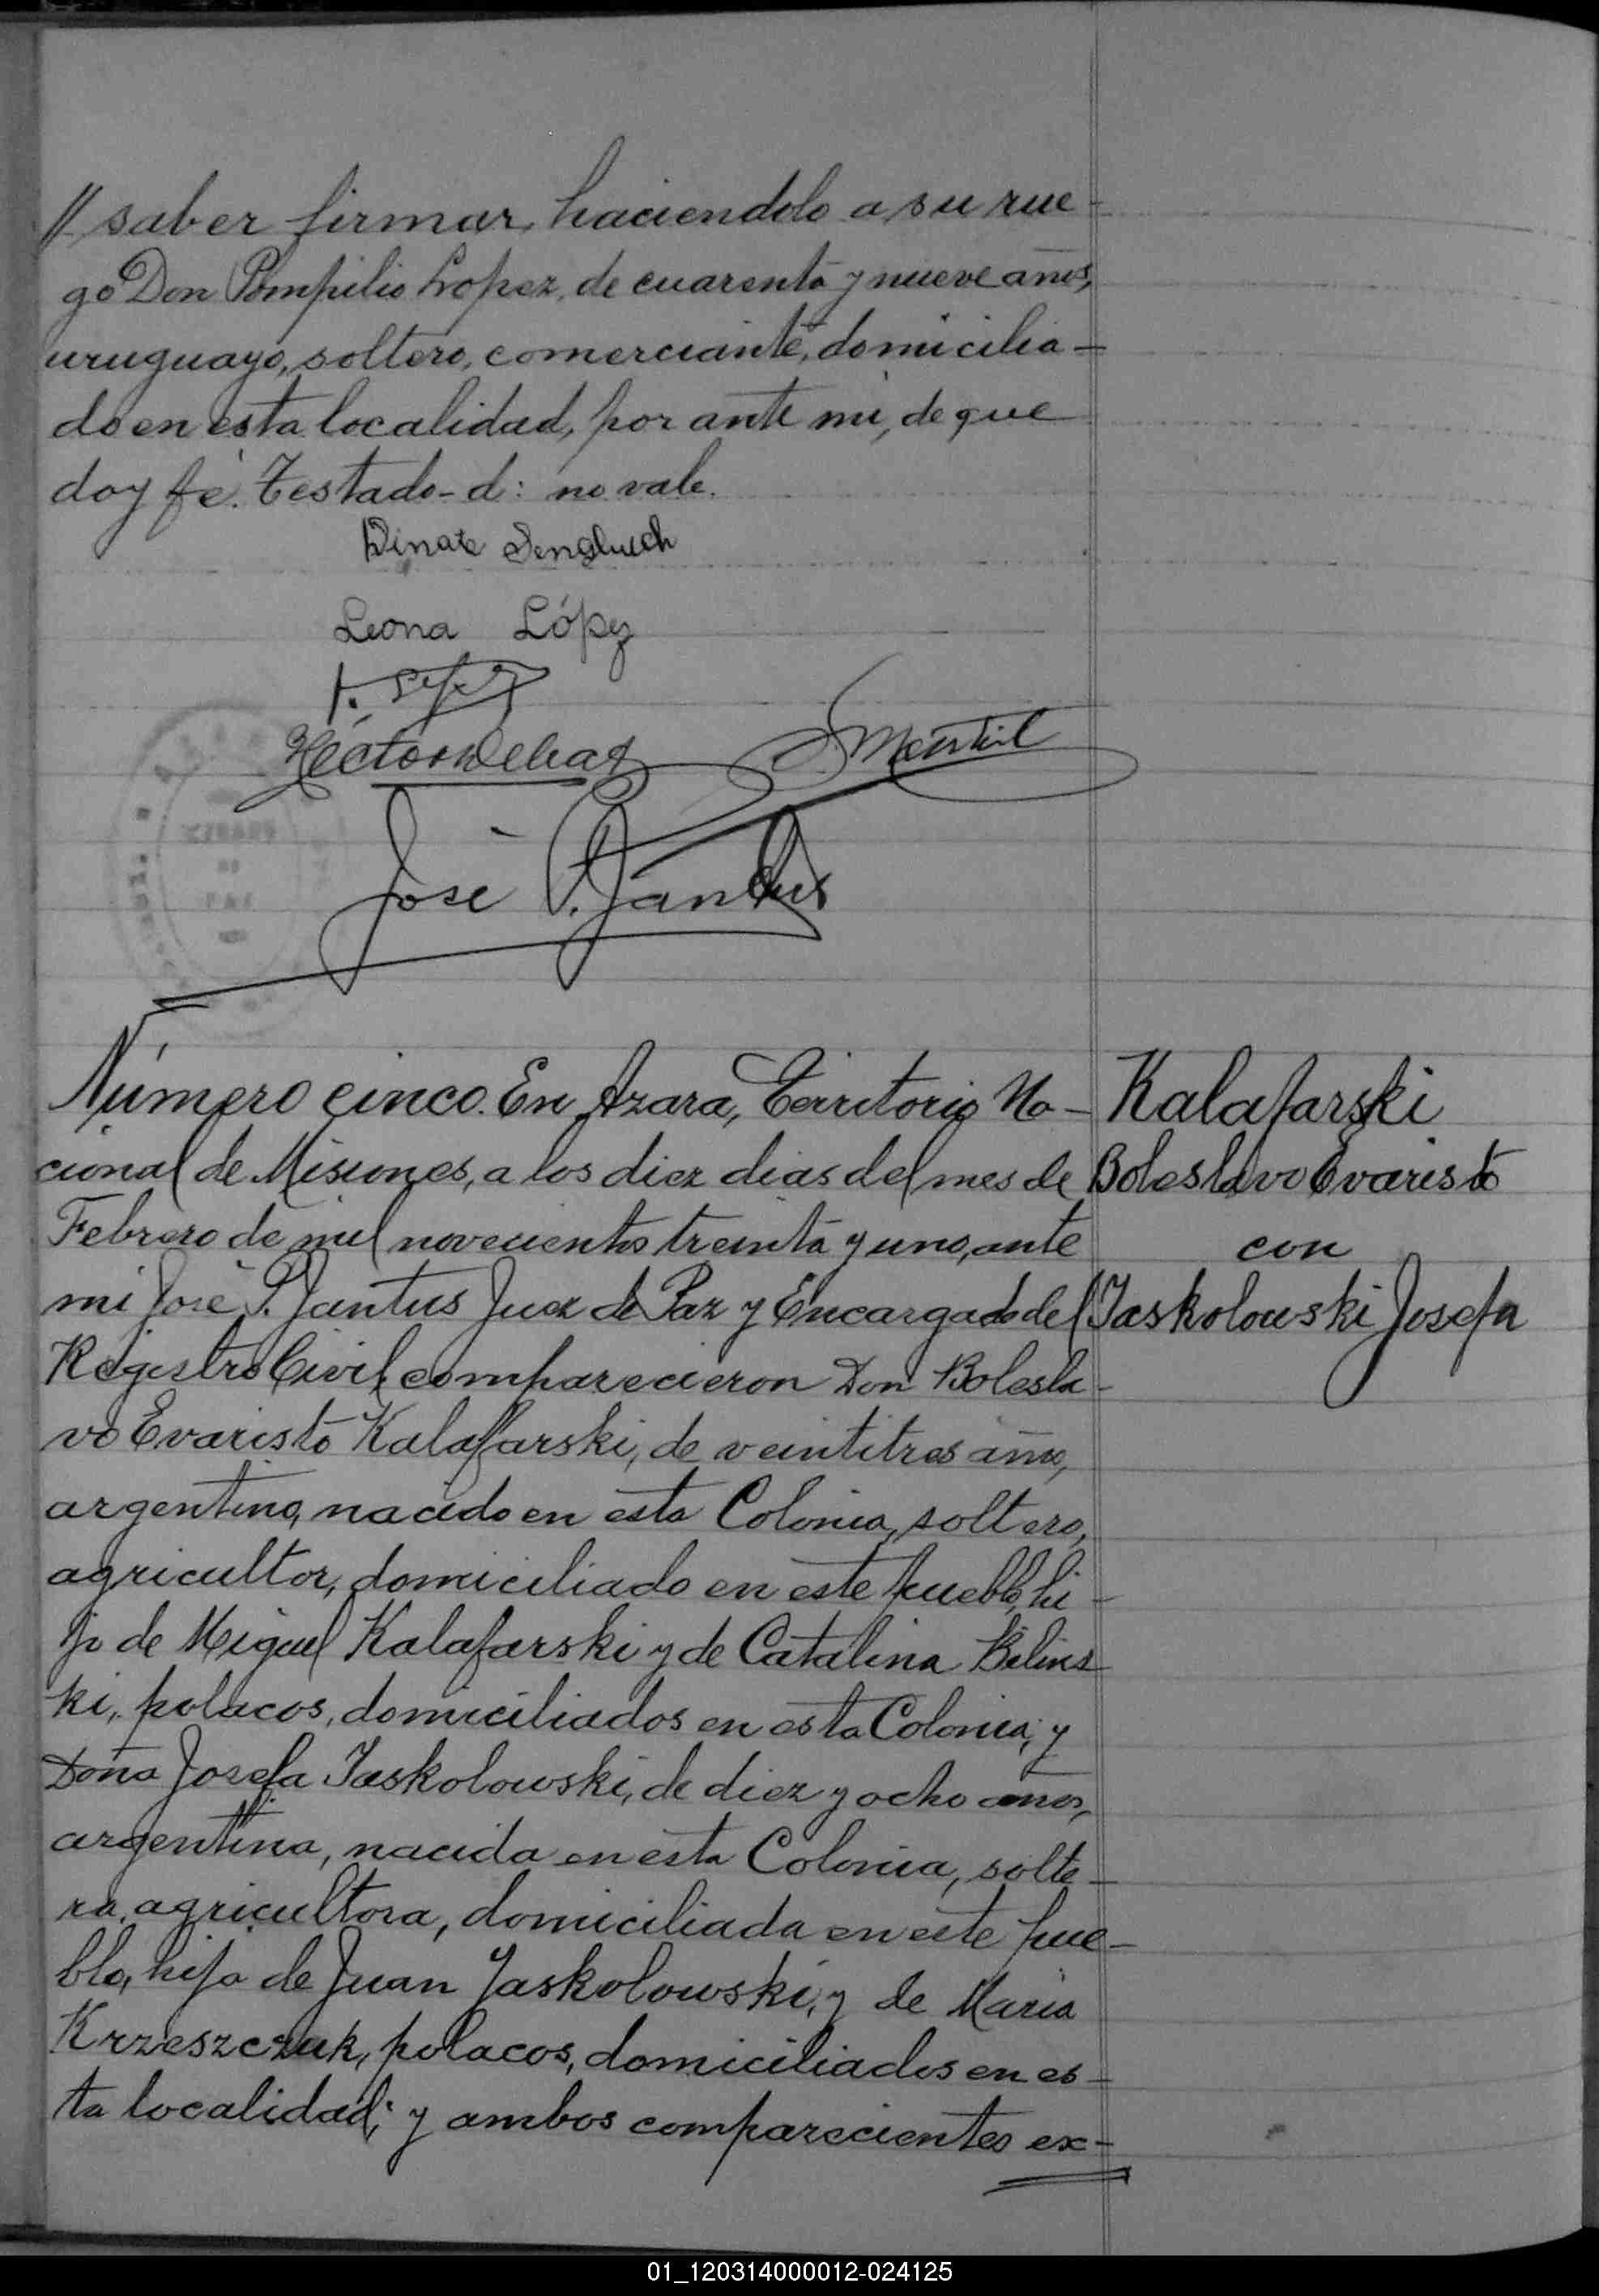 // saber firmar, haciendolo a su rue-
go Don Pompilio Lopez, de cuarenta y nueve años,
uruguayo, soltero, comerciante, domicilia-
do en esta localidad, por ante mi, de que
doy fé. Testado-d: no vale.
Leona López
José P. Jantus
Número cinco. En Azara, Territorio Na-
cional de Misiones, a los diez dias del mes de
Febrero de mil novecientos treinta y uno, ante
mi José P. Jantus Juez de Paz y Encargado del
Registro Civil, comparecieron Don Bolesla-
vo Evaristo Kalafarski, de veintitres años,
argentino, nacido en esta Colonia, soltero,
agricultor, domiciliado en este pueblo, hi-
jo de Miguel Kalafarski y de Catalina Bilins-
ki, polacos, domiciliados en esta Colonia; y
Doña Josefa Jaskolowski, de diez y ocho años,
argentina, nacida en esta Colonia, solte-
ra, agricultora, domiciliada en este pue-
blo, hija de Juan Jaskolowski, y de Maria
Krzeszczuk, polacos, domiciliados en es-
ta localidad; y ambos comparecientes ex-
Kalafarski
Boleslavo Evaristo
con
Jaskolowski Josefa
01_120314000012-024125